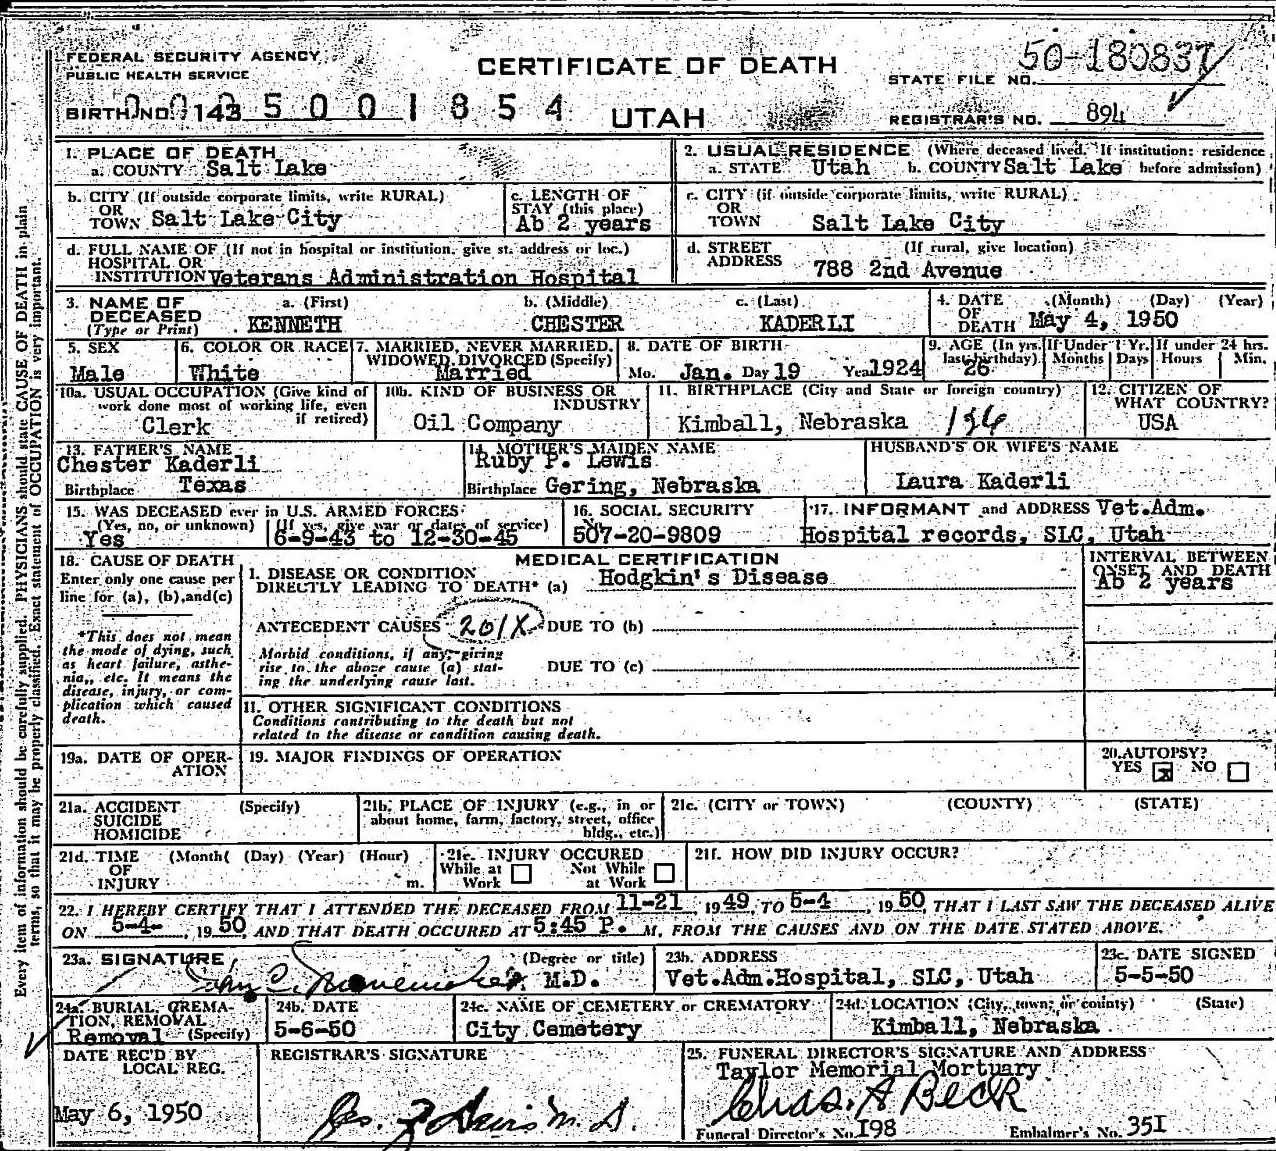 FEDERAL SECURITY AGENCY
PUBLIC HEALTH SERVICE
CERTIFICATE OF DEATH
STATE FILE NO. 50-180837
BIRTH NO. 143 5 0 0 1 8 5 4
UTAH
REGISTRAR'S NO. 894
1. PLACE OF DEATH
a. COUNTY Salt Lake
2. USUAL RESIDENCE (Where deceased lived. If institution: residence
a. STATE Utah b. COUNTY Salt Lake before admission)
b. CITY (If outside corporate limits, write RURAL)
OR
TOWN Salt Lake City
c. LENGTH OF
STAY (this place)
Ab 2 years
c. CITY (if outside corporate limits, write RURAL)
OR
TOWN Salt Lake City
d. FULL NAME OF (If not in hospital or institution, give st. address or loc.)
HOSPITAL OR
INSTITUTION Veterans Administration Hospital
d. STREET (If rural, give location)
ADDRESS 788 2nd Avenue
3. NAME OF a. (First) b. (Middle) c. (Last)
DECEASED
(Type or Print) KENNETH CHESTER KADERLI
4. DATE (Month) (Day) (Year)
OF
DEATH May 4, 1950
5. SEX
Male
6. COLOR OR RACE
White
7. MARRIED, NEVER MARRIED,
WIDOWED, DIVORCED (Specify)
Married
8. DATE OF BIRTH
Mo. Jan. Day 19 Year 1924
9. AGE (In yrs. last birthday) 26
If Under 1 Yr. Months Days
If under 24 hrs. Hours Min.
10a. USUAL OCCUPATION (Give kind of
work done most of working life, even
if retired)
Clerk
10b. KIND OF BUSINESS OR
INDUSTRY
Oil Company
11. BIRTHPLACE (City and State or foreign country)
Kimball, Nebraska 126
12. CITIZEN OF
WHAT COUNTRY?
USA
13. FATHER'S NAME
Chester Kaderli
Birthplace Texas
14. MOTHER'S MAIDEN NAME
Ruby P. Lewis
Birthplace Gering, Nebraska
HUSBAND'S OR WIFE'S NAME
Laura Kaderli
15. WAS DECEASED ever in U.S. ARMED FORCES
(Yes, no, or unknown) (If yes, give war or dates of service)
Yes 6-9-43 to 12-30-45
16. SOCIAL SECURITY
No.
507-20-9809
17. INFORMANT and ADDRESS Vet.Adm.
Hospital records, SLC, Utah
18. CAUSE OF DEATH
Enter only one cause per
line for (a), (b), and (c)
*This does not mean
the mode of dying, such
as heart failure, asthe-
nia, etc. It means the
disease, injury, or com-
plication which caused
death.
MEDICAL CERTIFICATION
I. DISEASE OR CONDITION
DIRECTLY LEADING TO DEATH* (a) Hodgkin's Disease
ANTECEDENT CAUSES 201X DUE TO (b)
Morbid conditions, if any, giving
rise to the above cause (a) stat-
ing the underlying cause last.
DUE TO (c)
II. OTHER SIGNIFICANT CONDITIONS
Conditions contributing to the death but not
related to the disease or condition causing death.
INTERVAL BETWEEN
ONSET AND DEATH
Ab 2 years
19a. DATE OF OPER-
ATION
19. MAJOR FINDINGS OF OPERATION
20. AUTOPSY?
YES x NO
21a. ACCIDENT (Specify)
SUICIDE
HOMICIDE
21b. PLACE OF INJURY (e.g., in or
about home, farm, factory, street, office
bldg., etc.)
21c. (CITY or TOWN) (COUNTY) (STATE)
21d. TIME (Month( (Day) (Year) (Hour)
OF
INJURY m.
21e. INJURY OCCURED
While at Work
Not While at Work
21f. HOW DID INJURY OCCUR?
22. I HEREBY CERTIFY THAT I ATTENDED THE DECEASED FROM 11-21, 1949, TO 5-4, 1950, THAT I LAST SAW THE DECEASED ALIVE
ON 5-4-, 1950, AND THAT DEATH OCCURED AT 5:45 P. M, FROM THE CAUSES AND ON THE DATE STATED ABOVE.
23a. SIGNATURE (Degree or title)
John C. M.D.
23b. ADDRESS
Vet.Adm.Hospital, SLC, Utah
23c. DATE SIGNED
5-5-50
24a. BURIAL, CREMA-
TION, REMOVAL
Removal (Specify)
24b. DATE
5-6-50
24c. NAME OF CEMETERY OR CREMATORY
City Cemetery
24d. LOCATION (City, town, or county) (State)
Kimball, Nebraska
DATE REC'D BY
LOCAL REG.
May 6, 1950
REGISTRAR'S SIGNATURE
M.D.
25. FUNERAL DIRECTOR'S SIGNATURE AND ADDRESS
Taylor Memorial Mortuary
Chas. A Beck
Funeral Director's No. 198 Embalmer's No. 351
Every item of information should be carefully supplied. PHYSICIANS should state CAUSE OF DEATH in plain
terms, so that it may be properly classified. Exact statement of OCCUPATION is very important.